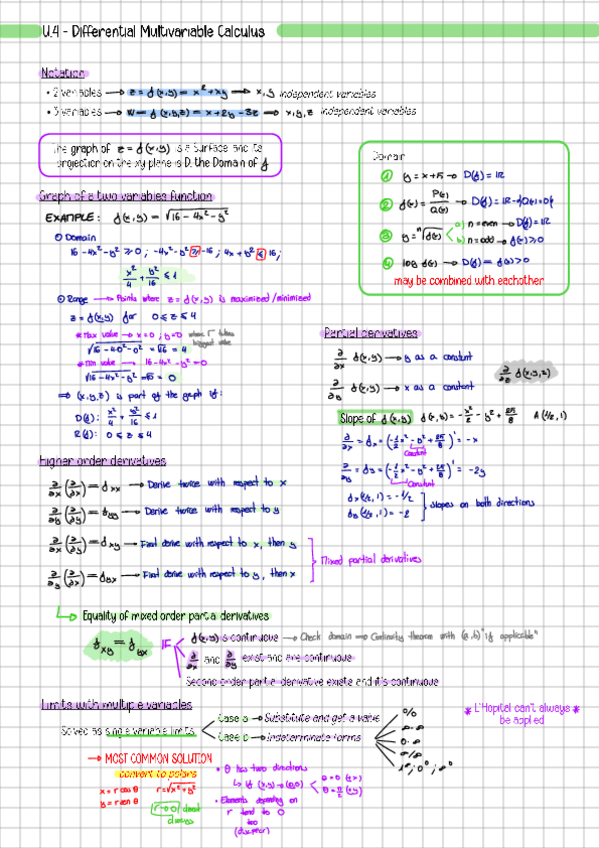 U.4 - Differential Multivariable Calculus
Notation
• 2 variables → z = f(x,y) = x² + xy → x, y independent variables
• 3 variables → w = f(x,y,z) = x + 2y - 3z → x, y, z independent variables
The graph of z = f(x,y) is a surface and its
projection on the xy plane is D, the Domain of f
Graph of a two variables function
EXAMPLE: f(x,y) = √16 - 4x² - y²
① Domain
16 - 4x² - y² ≥ 0 ; -4x² - y² ≥ -16 ; 4x + y² ≤ 16 ;
x²/4 + y²/16 ≤ 1
② Range → Points where z = f(x,y) is maximized/minimized
z = f(x,y) for 0 ≤ z ≤ 4
* Max value → x=0 ; y=0 when √ takes
biggest value
√16 - 4·0² - 0² = √16 = 4
* Min value → 16 - 4x² - y² = 0
√16 - 4x² - y² = √0 = 0
⇒ (x,y,z) is part of the graph if:
D(f): x²/4 + y²/16 ≤ 1
R(f): 0 ≤ z ≤ 4
Domain
① y = x + 5 → D(f) = IR
② f(x) = P(x)/Q(x) → D(f) = IR - {Q(x) = 0}
③ y = ⁿ√f(x)
a) n = even → D(f) = IR
b) n = odd → f(x) ≥ 0
④ log f(x) → D(f) = f(x) > 0
may be combined with eachother
Partial derivatives
∂/∂x f(x,y) → y as a constant
∂/∂y f(x,y) → x as a constant
∂/∂z f(x,y,z)
Slope of f(x,y) f(x,y) = -x²/2 - y² + 25/8 A(1/2, 1)
∂/∂x = fx = (-1/2 x² - y² + 25/8)' = -x
Constant
∂/∂y = fy = (-1/2 x² - y² + 25/8)' = -2y
Constant
fx(1/2, 1) = -1/2
fy(1/2, 1) = -2
slopes on both directions
Higher order derivatives
∂/∂x (∂/∂x) = fxx → Derive twice with respect to x
∂/∂y (∂/∂y) = fyy → Derive twice with respect to y
∂/∂x (∂/∂y) = fxy → First derive with respect to x, then y
∂/∂y (∂/∂x) = fyx → First derive with respect to y, then x
Mixed partial derivatives
Equality of mixed order partial derivatives
fxy = fyx IF
f(x,y) is continuous → Check domain → Continuity theorem with (a,b) "if applicable"
∂/∂x and ∂/∂y exist and are continuous
Second order partial derivative exists and it's continuous
Limits with multiple variables
Solved as single variable limits
Case a → Substitute and get a value
Case b → Indeterminate forms
0/0
∞-∞
0·∞
∞/∞
* L'Hopital can't always *
be applied
→ MOST COMMON SOLUTION
convert to polars
x = r cos θ r = √x² + y²
y = r sen θ
• θ has two directions
↳ if (x,y) → (0,0)
θ = 0 (x)
θ = π/2 (y)
• Elements depending on
r tend to 0
too
(disappear)